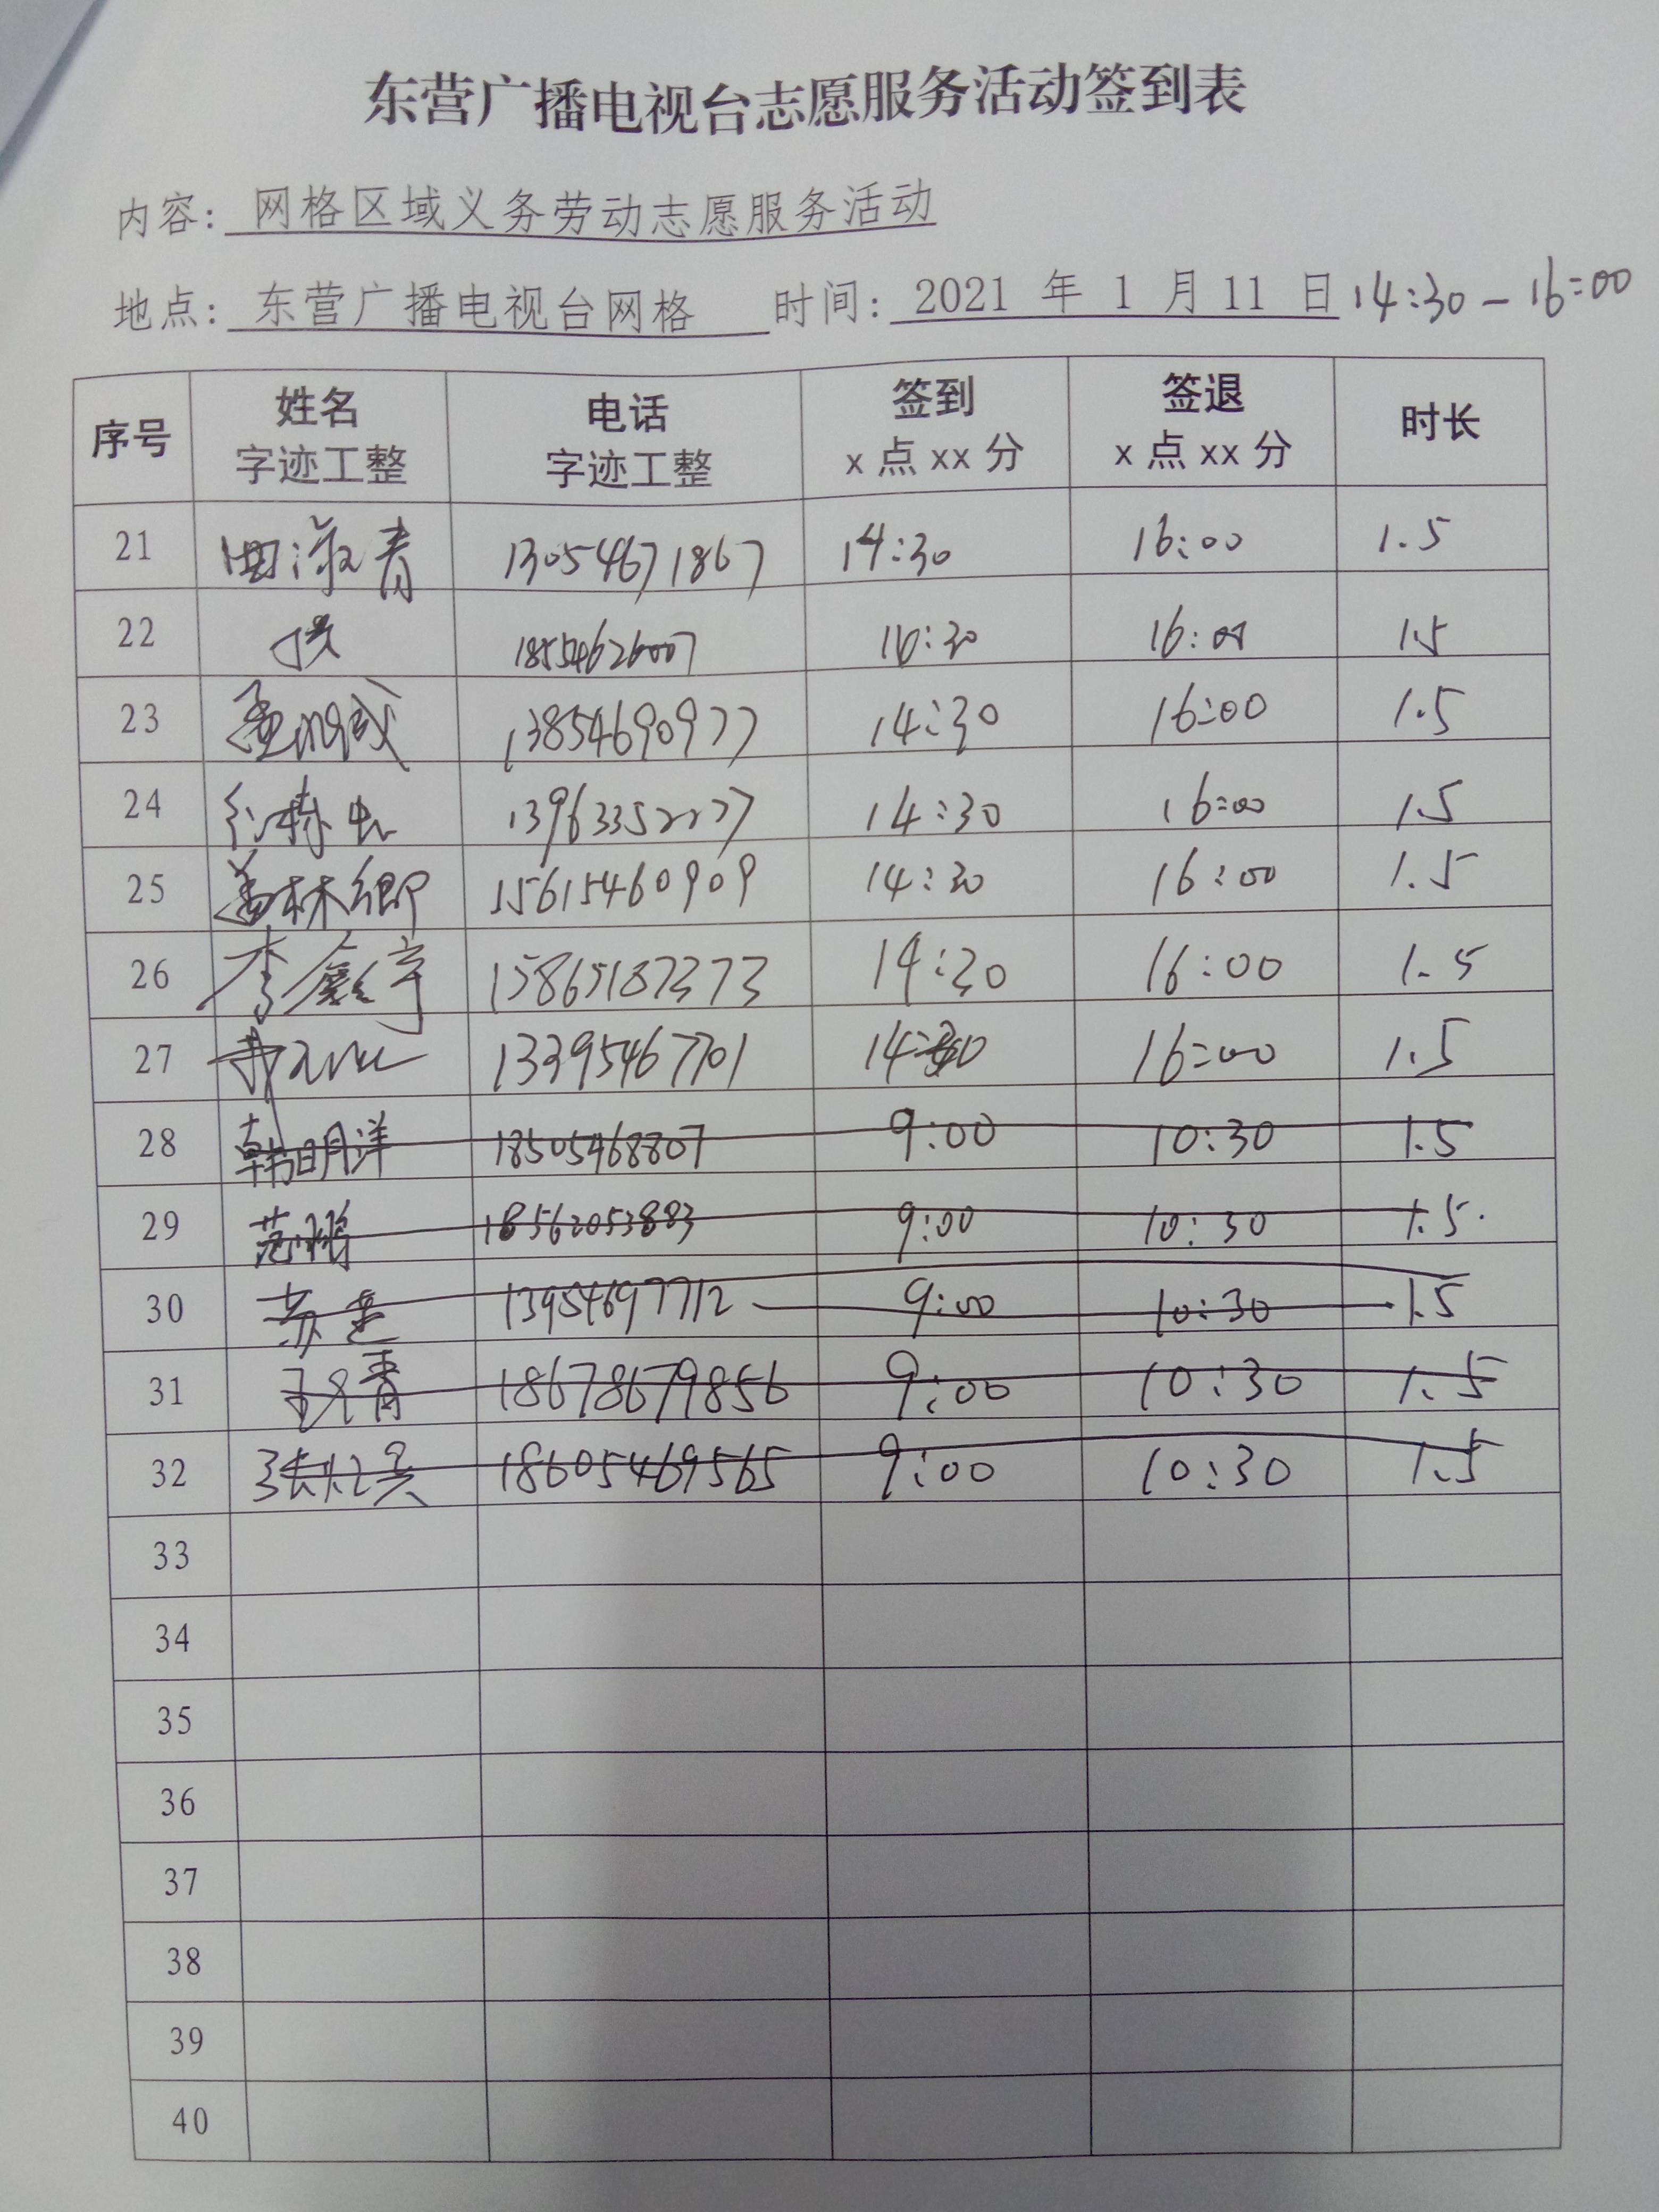 东营广播电视台志愿服务活动签到表
内容: 网格区域义务劳动志愿服务活动
地点: 东营广播电视台网格 时间: 2021 年 1 月 11 日 14:30-16:00
序号 姓名 电话 签到 签退 时长
字迹工整 字迹工整 x 点 xx 分 x 点 xx 分
21 田淑青 13054671867 14:30 16:00 1.5
22 18554626007 16:00 1.5
23 13854690977 14:30 16:00 1.5
24 14:30 16:00 1.5
25 15615460909 14:30 16:00 1.5
26 李 宇 15865187373 14:30 16:00 1.5
27 13395467701 16:00 1.5
28 韩明洋 18505468807 9:00 10:30 1.5
29 范 18562053883 9:00 10:30 1.5
30 苏 13954697712 9:00 10:30 1.5
31 青 18678679856 9:00 10:30 1.5
32 张 18605469565 9:00 10:30 1.5
33
34
35
36
37
38
39
40